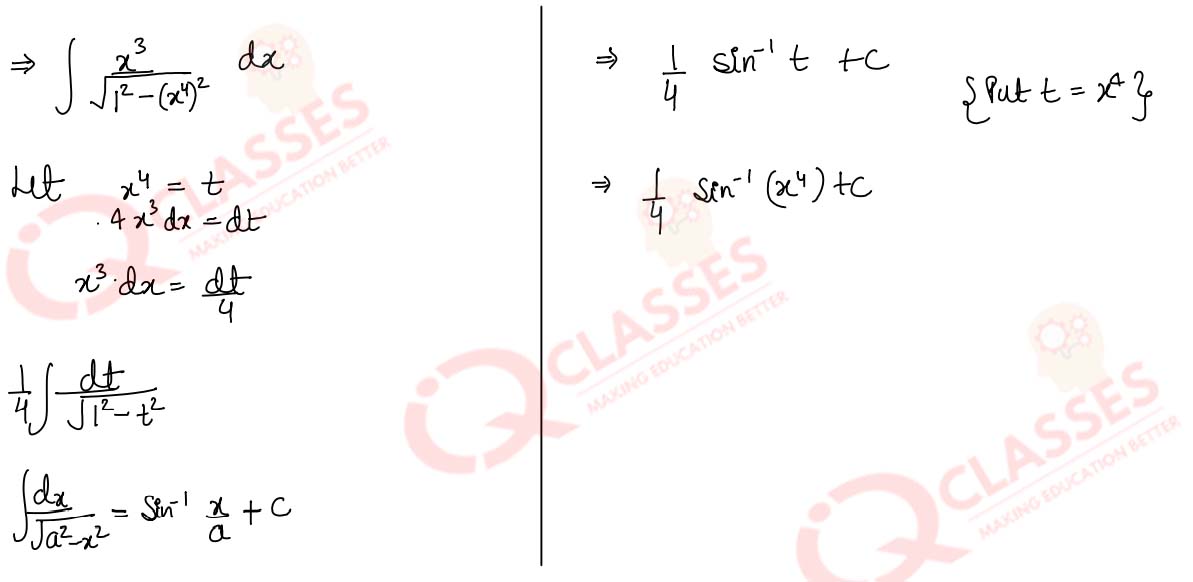 ⇒ ∫ x³/√(1² − (x⁴)²) dx
Let x⁴ = t
. 4x³dx = dt
x³·dx = dt/4
1/4 ∫ dt/√(1² − t²)
∫ dx/√(a² − x²) = Sin⁻¹ x/a + C
⇒ 1/4 Sin⁻¹ t + C
{Put t = x⁴}
⇒ 1/4 Sin⁻¹ (x⁴) + C
iQ CLASSES
MAKING EDUCATION BETTER
iQ CLASSES
MAKING EDUCATION BETTER
iQ CLASSES
MAKING EDUCATION BETTER